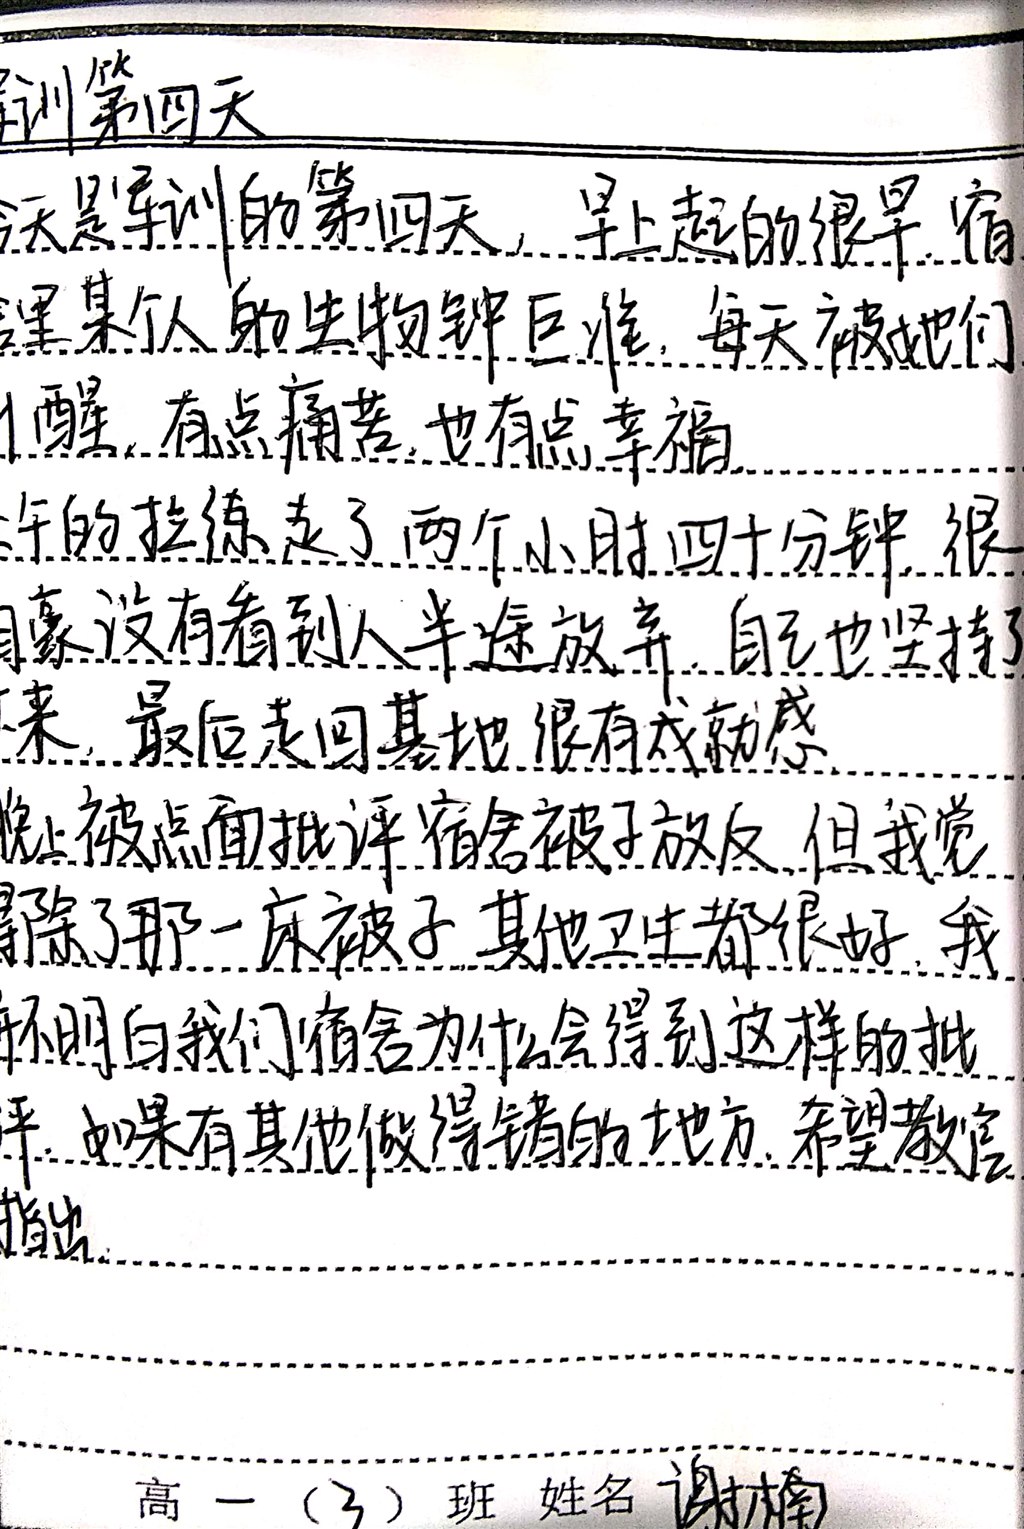 军训第四天
今天是军训的第四天，早上起的很早.宿
舍里某个人的生物钟巨准，每天被她们
叫醒，有点痛苦，也有点幸福.
上午的拉练走了两个小时四十分钟，很
自豪没有看到人半途放弃.自己也坚持了
下来，最后走回基地很有成就感.
晚上被点面批评宿舍被子放反，但我觉
得除了那一床被子其他卫生都很好，我
不明白我们宿舍为什么会得到这样的批
评.如果有其他做得错的地方，希望教官
指出.
高一（3）班 姓名 谢楠